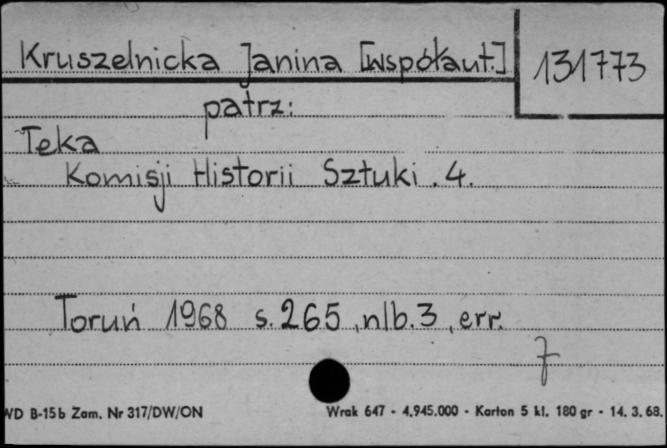 Kruszelnicka Janina [współaut.] 131773
patrz:
Teka
Komisji Historii Sztuki. 4.
Toruń 1968 s. 265, nlb. 3, err.
7
WD B-15b Zam. Nr 317/DW/ON Wrak 647 - 4.945.000 - Karton 5 kl. 180 gr - 14. 3. 68.